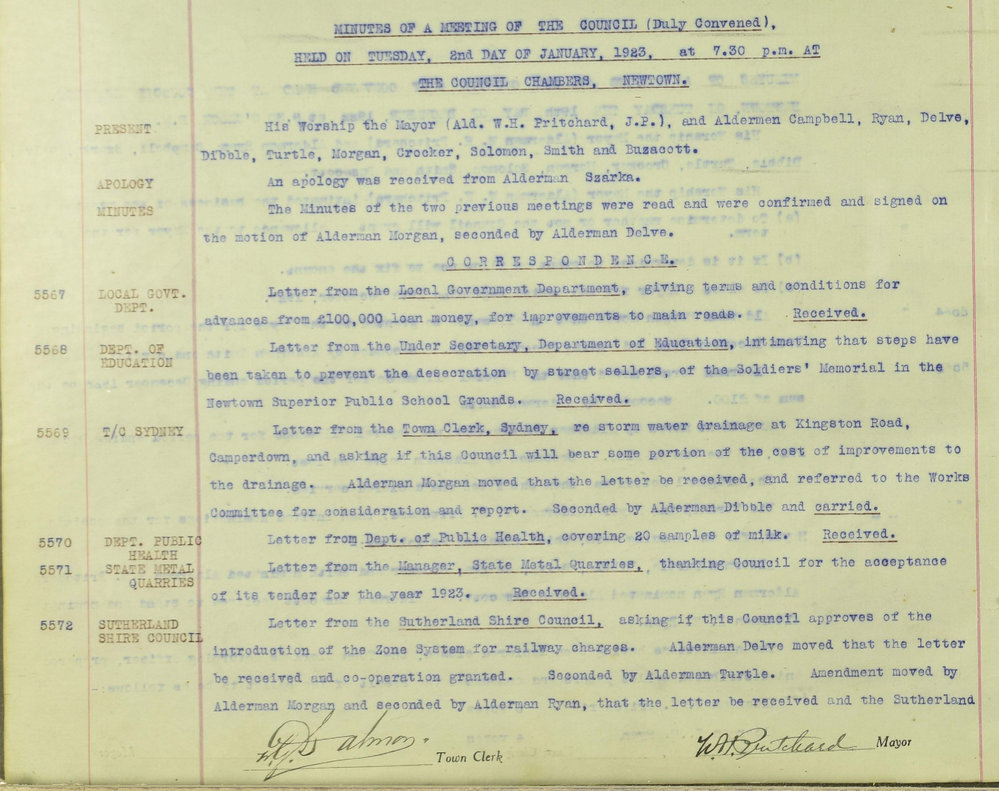 MINUTES OF A MEETING OF THE COUNCIL (Duly Convened),
HELD ON TUESDAY, 2nd DAY OF JANUARY, 1923, at 7.30 p.m. AT
THE COUNCIL CHAMBERS, NEWTOWN.
PRESENT His Worship the Mayor (Ald. W.H. Pritchard, J.P.), and Aldermen Campbell, Ryan, Delve,
Dibble, Turtle, Morgan, Crocker, Solomon, Smith and Buzacott.
APOLOGY An apology was received from Alderman Szarka.
MINUTES The Minutes of the two previous meetings were read and were confirmed and signed on
the motion of Alderman Morgan, seconded by Alderman Delve.
CORRESPONDENCE.
5567 LOCAL GOVT. Letter from the Local Government Department, giving terms and conditions for
DEPT. advances from £100,000 loan money, for improvements to main roads. Received.
5568 DEPT. OF Letter from the Under Secretary, Department of Education, intimating that steps have
EDUCATION been taken to prevent the desecration by street sellers, of the Soldiers' Memorial in the
Newtown Superior Public School Grounds. Received.
5569 T/C SYDNEY Letter from the Town Clerk, Sydney, re storm water drainage at Kingston Road,
Camperdown, and asking if this Council will bear some portion of the cost of improvements to
the drainage. Alderman Morgan moved that the letter be received, and referred to the Works
Committee for consideration and report. Seconded by Alderman Dibble and carried.
5570 DEPT. PUBLIC Letter from Dept. of Public Health, covering 20 samples of milk. Received.
HEALTH
5571 STATE METAL Letter from the Manager, State Metal Quarries, thanking Council for the acceptance
QUARRIES of its tender for the year 1923. Received.
5572 SUTHERLAND Letter from the Sutherland Shire Council, asking if this Council approves of the
SHIRE COUNCIL introduction of the Zone System for railway charges. Alderman Delve moved that the letter
be received and co-operation granted. Seconded by Alderman Turtle. Amendment moved by
Alderman Morgan and seconded by Alderman Ryan, that the letter be received and the Sutherland
Town Clerk W.H. Pritchard Mayor